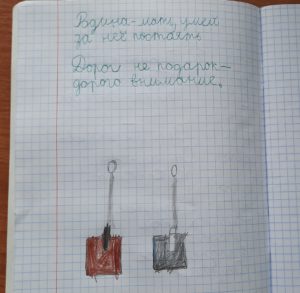 Вдина-мать, умей
за неё постаять
Дорог не подарок-
дорого внимание.